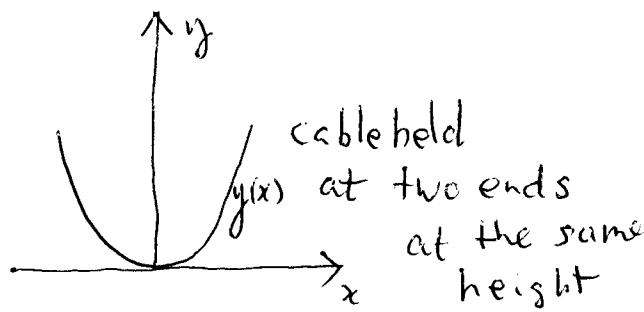 y
cable held
y(x) at two ends
at the same
x height